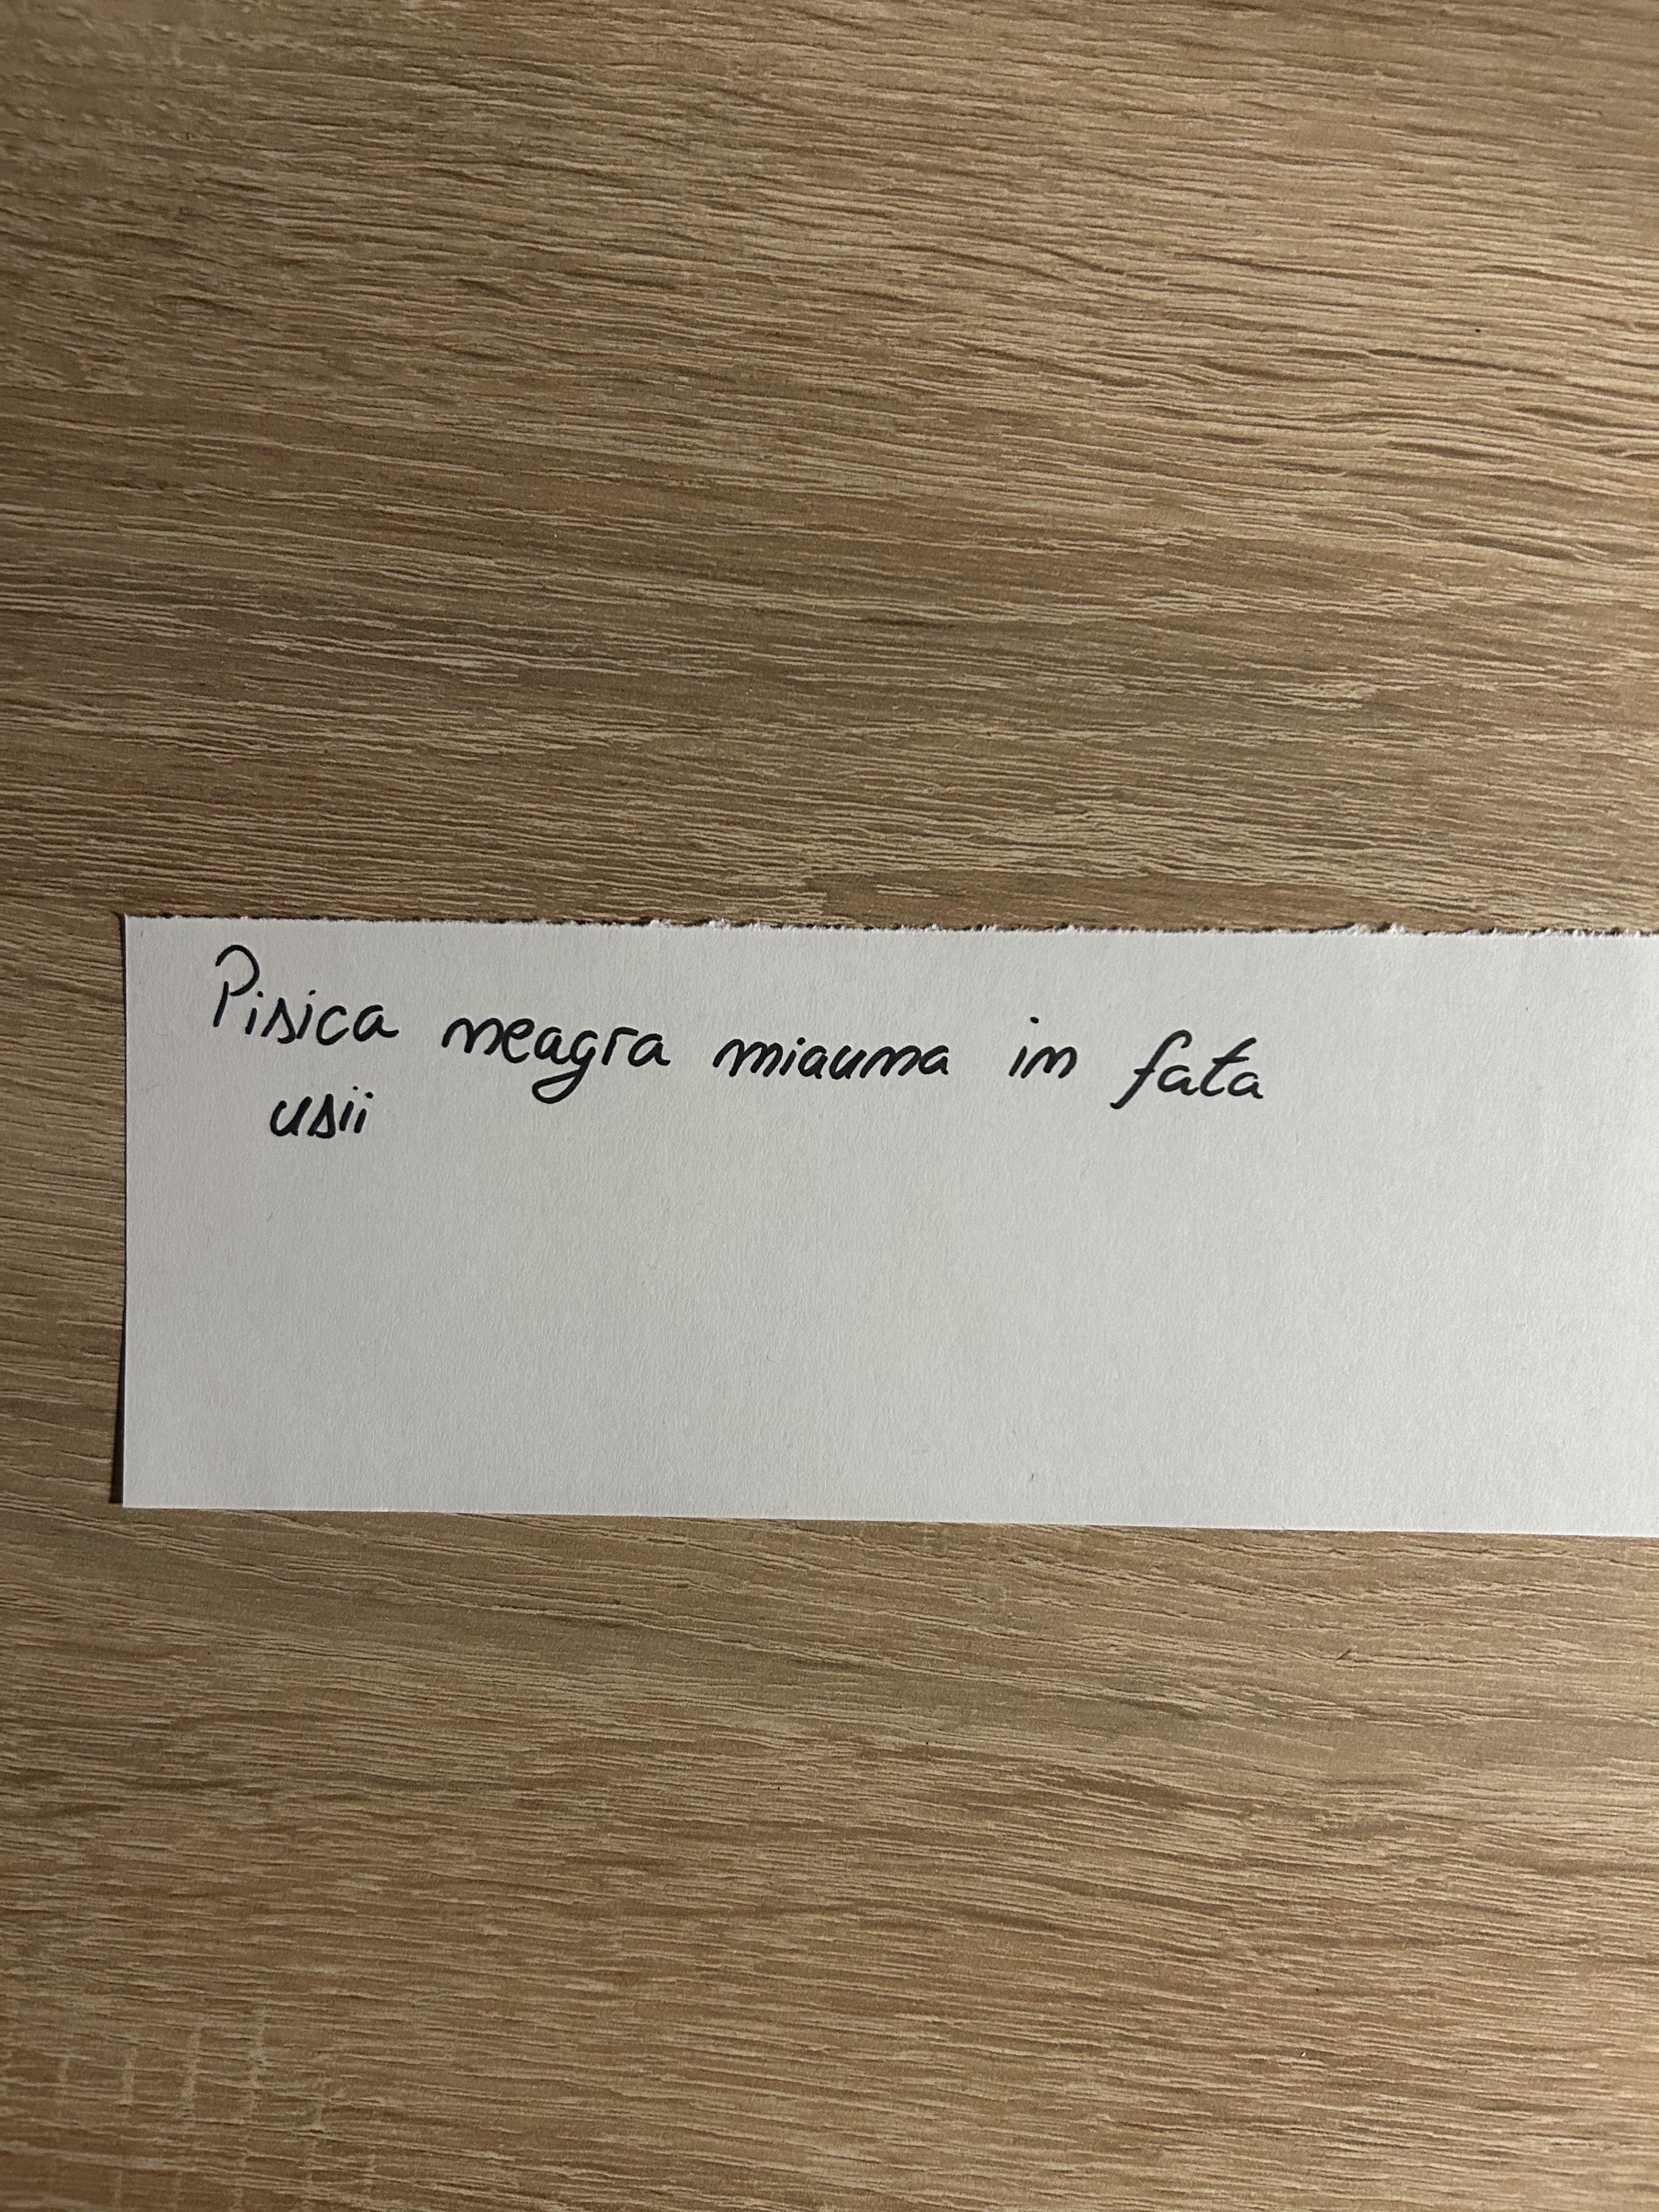 Pisica neagra miauna in fata
usii